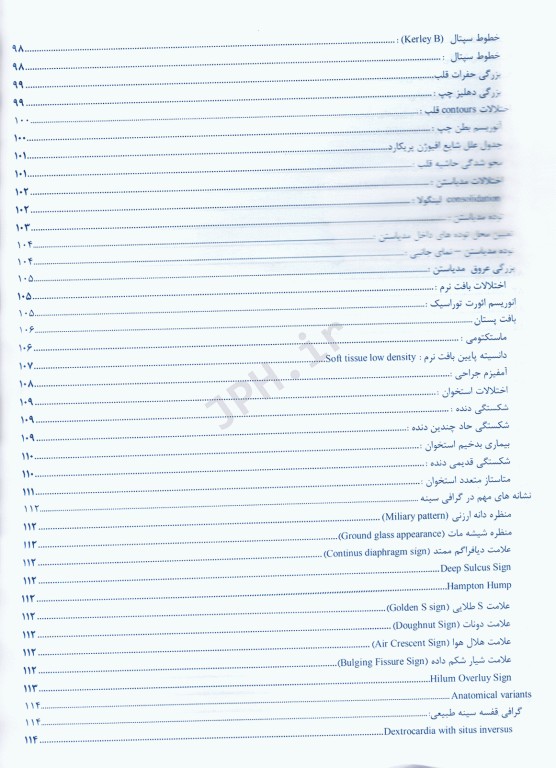 خطوط سپتال (Kerley B) : ..... ۹۸
خطوط سپتال : ..... ۹۸
بزرگی حفرات قلب ..... ۹۹
بزرگی دهلیز چپ : ..... ۹۹
اختلالات contours قلب : ..... ۱۰۰
آنوریسم بطن چپ : ..... ۱۰۰
جدول علل شایع افیوژن پریکارد ..... ۱۰۱
محو شدگی حاشیه قلب : ..... ۱۰۱
اختلالات مدیاستن : ..... ۱۰۲
consolidation لینگولا : ..... ۱۰۲
توده مدیاستن : ..... ۱۰۳
محل توده های داخل مدیاستن : ..... ۱۰۴
توده مدیاستن – نمای جانبی : ..... ۱۰۴
بزرگی عروق مدیاستن : ..... ۱۰۵
اختلالات بافت نرم : ..... ۱۰۵
آنوریسم ائورت توراسیک : ..... ۱۰۵
بافت پستان ..... ۱۰۶
ماستکتومی : ..... ۱۰۶
دانسیته پایین بافت نرم : Soft tissue low density ..... ۱۰۷
آمفیزم جراحی : ..... ۱۰۸
اختلالات استخوان : ..... ۱۰۹
شکستگی دنده : ..... ۱۰۹
شکستگی حاد چندین دنده : ..... ۱۰۹
بیماری بدخیم استخوان : ..... ۱۱۰
شکستگی قدیمی دنده : ..... ۱۱۰
متاستاز متعدد استخوان : ..... ۱۱۱
نشانه های مهم در گرافی سینه ..... ۱۱۲
منظره دانه ارزنی (Miliary pattern) ..... ۱۱۲
منظره شیشه مات (Ground glass appearance) ..... ۱۱۲
علامت دیافراگم ممتد (Continus diaphragm sign) ..... ۱۱۲
Deep Sulcus Sign ..... ۱۱۲
Hampton Hump ..... ۱۱۲
علامت S طلایی (Golden S sign) ..... ۱۱۲
علامت دونات (Doughnut Sign) ..... ۱۱۲
علامت هلال هوا (Air Crescent Sign) ..... ۱۱۲
علامت شیار شکم داده (Bulging Fissure Sign) ..... ۱۱۲
Hilum Overluy Sign ..... ۱۱۳
Anatomical variants ..... ۱۱۴
گرافی قفسه سینه طبیعی: ..... ۱۱۴
Dextrocardia with situs inversus ..... ۱۱۴
JPH.ir